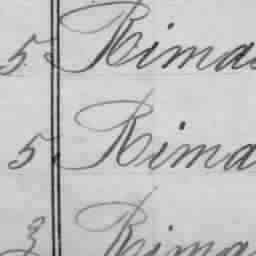 5 Rima
5 Rima
3 Rima